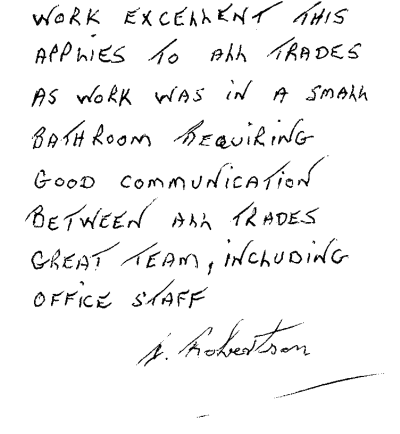 WORK EXCELLENT THIS
APPLIES TO ALL TRADES
AS WORK WAS IN A SMALL
BATHROOM REQUIRING
GOOD COMMUNICATION
BETWEEN ALL TRADES
GREAT TEAM, INCLUDING
OFFICE STAFF
Robertson